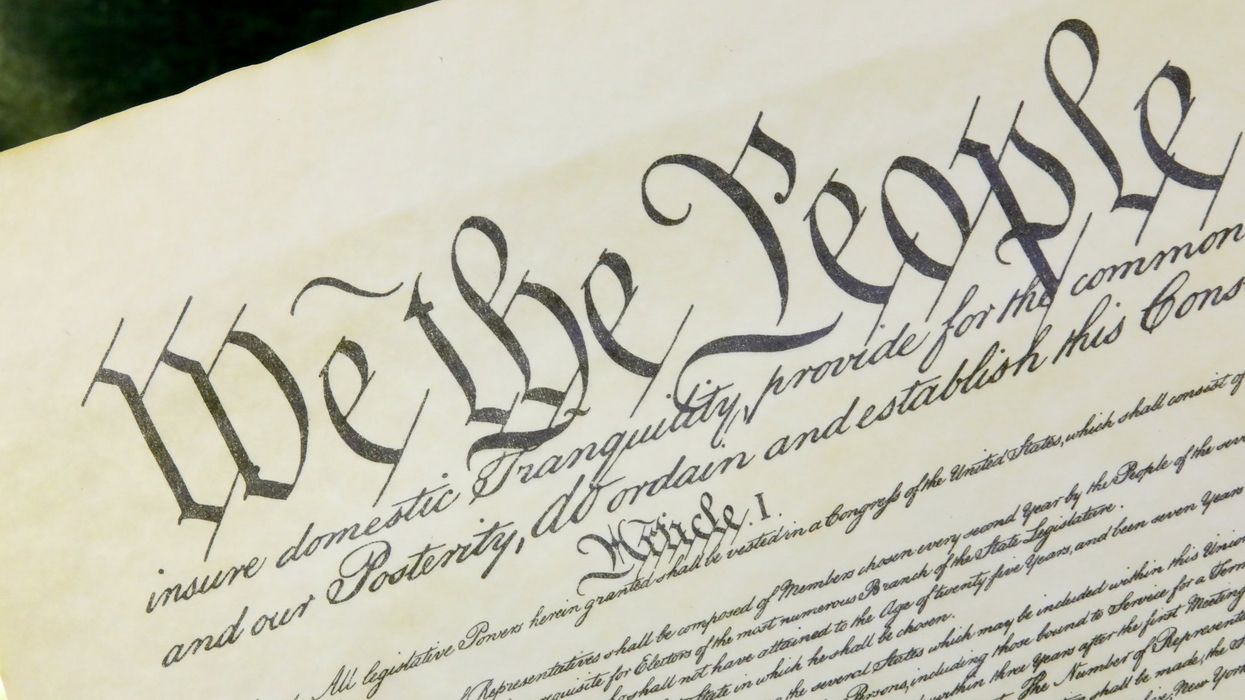 We the People
insure domestic Tranquility, provide for the common
and our Posterity, do ordain and establish this Cons
Article. I.
All legislative Powers herein granted shall be vested in a Congress of the United States, which shall consist of
Representatives shall be composed of Members chosen every second Year by the People of the seve
quisite for Electors of the most numerous Branch of the State Legislature.
shall not have attained to the Age of twenty five Years, and been seven Years
State in which he shall be chosen.
the several States which may be included within this Union
Persons, including those bound to Service for a Term
within three Years after the first Meeting
The Number of Represent
shall be made, the
New York